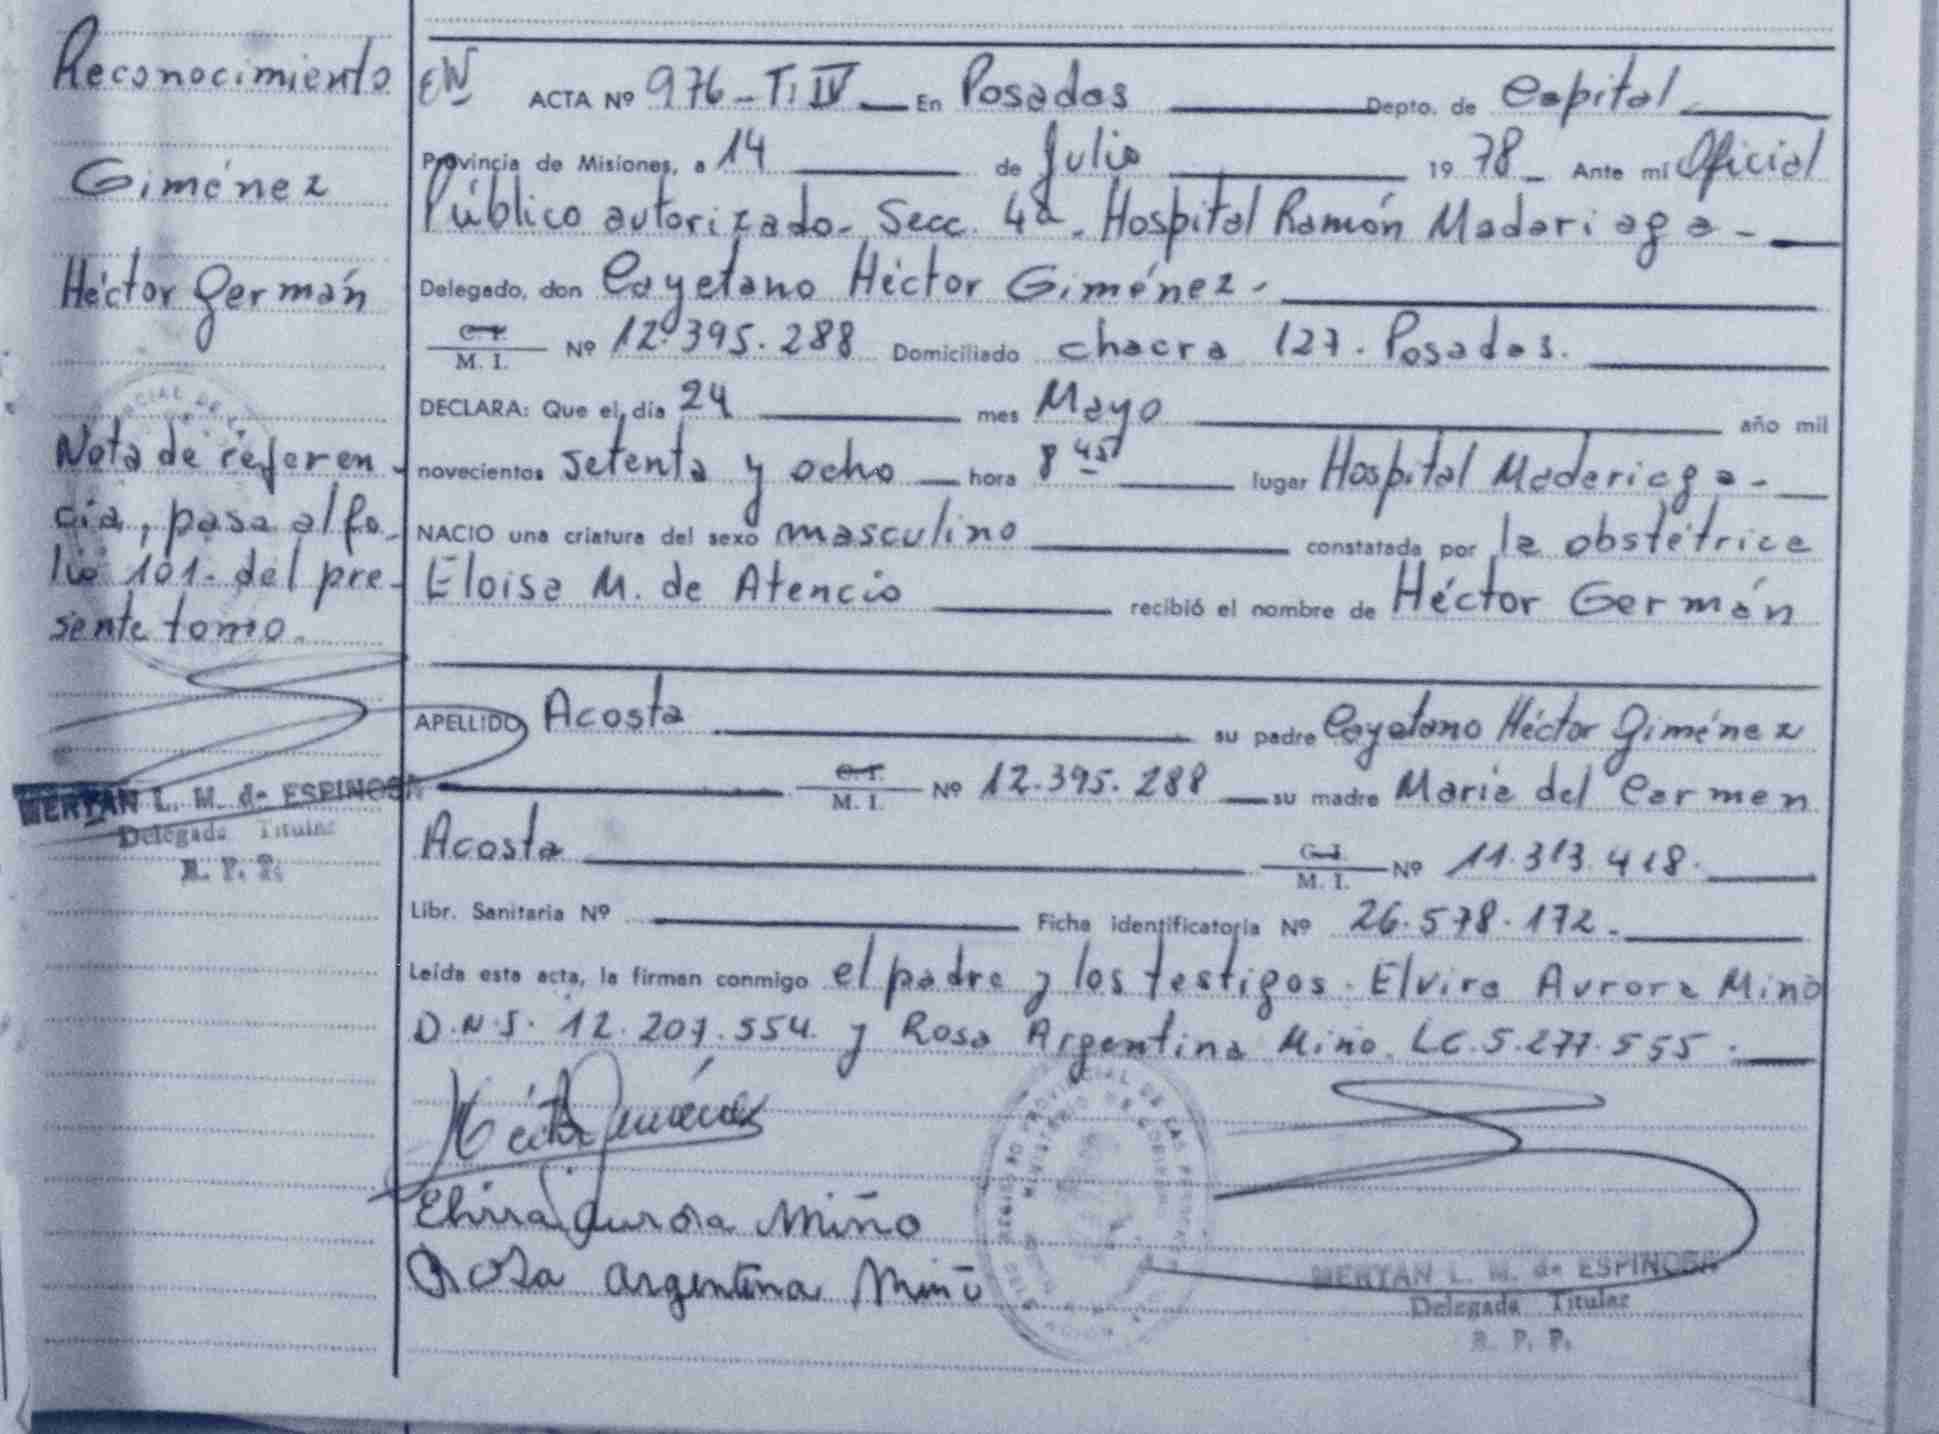 Reconocimiento
Giménez
Héctor Germán
Nota de referen-
cia, pasa al fo-
lio 101. del pre-
sente tomo.
MERYAN L. M. de ESPINOSA
Delegada Titular
R. P. P.
ACTA Nº 976 - T. IV En Posadas Depto. de Capital
Provincia de Misiones, a 14 de Julio 19 78 - Ante mí Oficial
Público autorizado - Secc. 4a - Hospital Ramón Madariaga -
Delegado, don Cayetano Héctor Giménez -
C. I. M. I. Nº 12.395.288 Domiciliado chacra 127. Posadas.
DECLARA: Que el día 24 mes Mayo año mil
novecientos setenta y ocho hora 8 45 lugar Hospital Madariaga -
NACIO una criatura del sexo masculino constatada por la obstétrica
Eloisa M. de Atencio recibió el nombre de Héctor Germán
APELLIDO Acosta su padre Cayetano Héctor Giménez
C. I. M. I. Nº 12.395.288 su madre María del Carmen
Acosta C. I. M. I. Nº 11.313.418.
Libr. Sanitaria Nº Ficha identificatoria Nº 26.578.172.
Leída esta acta, la firman conmigo el padre y los testigos. Elvira Aurora Miño
D.N.I. 12.207.554. y Rosa Argentina Miño. LC. 5.277.555.
Héctor Giménez
Elvira Aurora Miño
Rosa argentina Miño
REGISTRO PROVINCIAL DE LAS PERSONAS
MINISTERIO DE GOBIERNO
MERYAN L. M. de ESPINOSA
Delegada Titular
R. P. P.